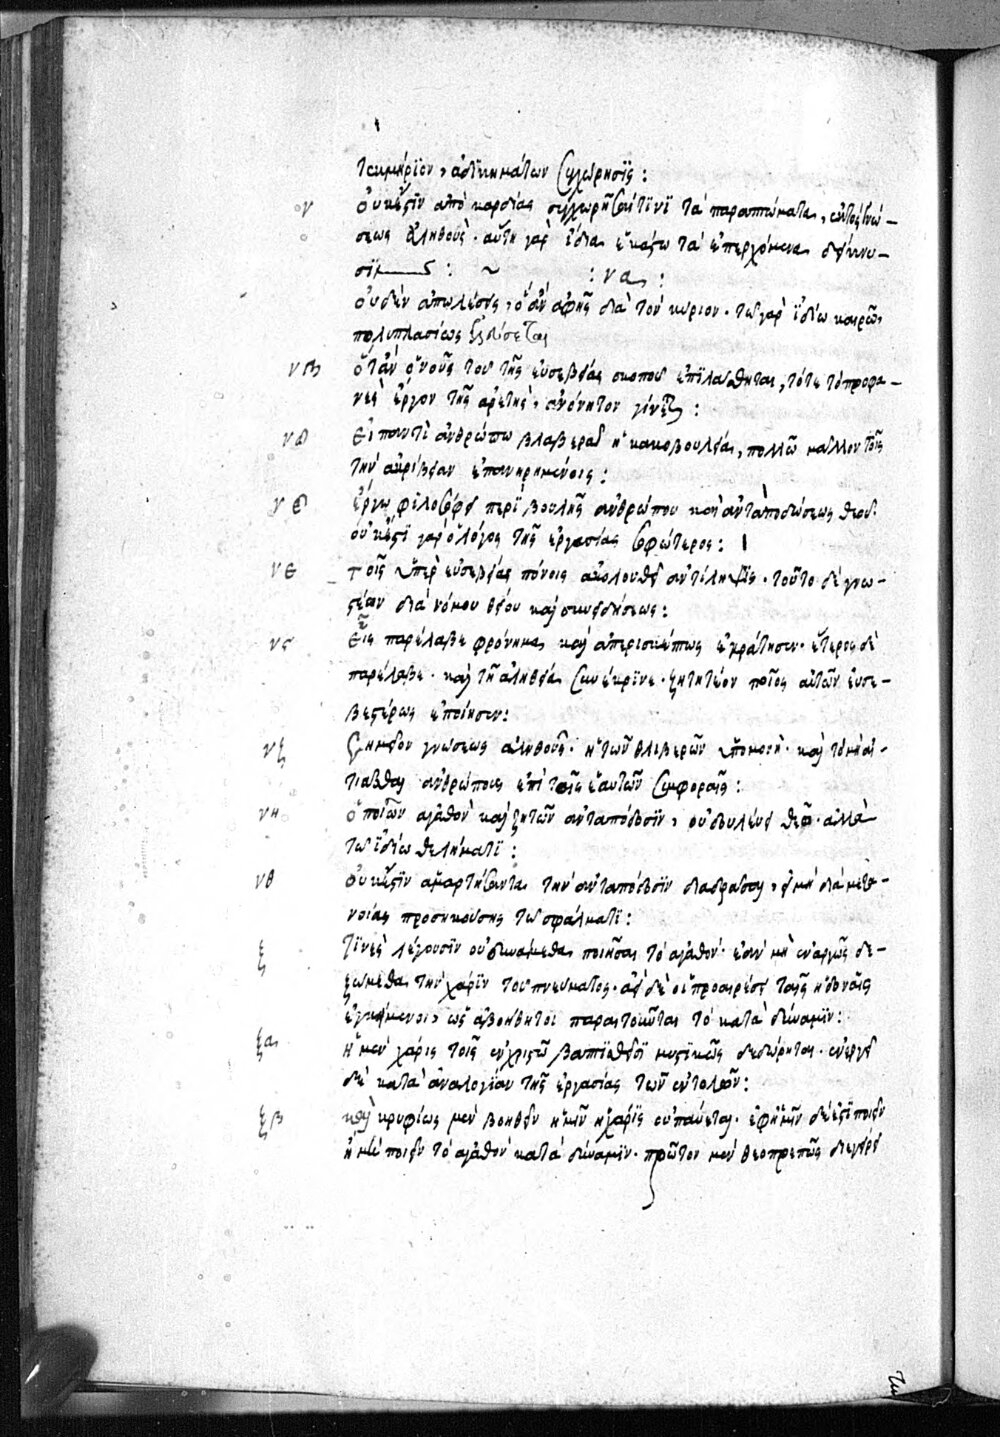 τεκμήριον, ἀδικημάτων συγχώρησις :
ν οὐκ ἔστιν ἀπὸ καρδίας συγχωρῆσαι τινὶ τὰ παραπτώματα, ἐκτὸς γνώ-
σεως ἀληθοῦς. αὕτη γὰρ ἴδια ἑκάστω τὰ ἐπερχόμενα δείκνυ-
σιν : ~ : να :
οὐδὲν ἀπωλέσης, ὃ ἂν ἀφῆς διὰ τὸν κύριον. τῶ γὰρ ἰδίω καιρῶ,
πολυπλασίως ἐλεύσεται
νβ ὅταν ὁ νοῦς τοῦ τῆς εὐσεβείας σκοποῦ ἐπιλάθηται, τότε τὸ προφα-
νὲς ἔργον τῆς ἀρετῆς, ἀνόνητον γίνεται :
νγ εἰ παντὶ ἀνθρώπω βλαβερὰ ἡ κακοβουλία, πολλῶ μᾶλλον τοῖς
τὴν ἀκρίβειαν ἐπανηρημένοις :
νδ ἔργω φιλοσόφει περὶ βουλῆς ἀνθρώπου καὶ ἀνταποδώσεως θεοῦ.
οὐκ ἔστι γὰρ ὁ λόγος τῆς ἐργασίας σοφώτερος :
νε τοῖς ὑπὲρ εὐσεβείας πόνοις ἀκολουθεῖ ἀντίληψις. τοῦτο δὲ γνω-
στέον διὰ νόμου θεοῦ καὶ συνειδήσεως :
νς εἷς παρέλαβε φρόνημα καὶ ἀπερισκέπτως ἐκράτησεν. ἕτερος δὲ
παρέλαβε. καὶ τῆ ἀληθεία συνέκρινε. ζητητέον ποῖος αὐτῶν εὐσε-
βεστέρως ἐποίησεν :
νζ σημεῖον γνώσεως ἀληθοῦς. ἡ τῶν θλιβερῶν ὑπομονή. καὶ τὸ μὴ αἰ-
τιᾶσθαι ἀνθρώπους ἐπὶ ταῖς ἑαυτῶν συμφοραῖς :
νη ὁ ποιῶν ἀγαθὸν καὶ ζητῶν ἀνταπόδοσιν, οὐ δουλεύει θεῶ. ἀλλὰ
τῶ ἰδίω θελήματι :
νθ οὐκ ἔστιν ἁμαρτήσαντα τὴν ἀνταπόδοσιν διαδρᾶσαι, εἰ μὴ διὰ μετα-
νοίας προσηκούσης τῶ σφάλματι :
ξ τινὲς λέγουσιν οὐ δυνάμεθα ποιῆσαι τὸ ἀγαθόν. ἐὰν μὴ ἐναργῶς δε-
ξώμεθα τὴν χάριν τοῦ πνεύματος. ἀεὶ δὲ οἱ προαιρέσει ταῖς ἡδοναῖς
ἐγκείμενοι, ὡς ἀβοήθητοι παραιτοῦνται τὸ κατὰ δύναμιν :
ξα ἡ μὲν χάρις τοῖς ἐν χριστῶ βαπτισθεῖσι μυστικῶς δεδώρηται. ἐνεργεῖ
δὲ κατὰ ἀναλογίαν τῆς ἐργασίας τῶν ἐντολῶν :
ξβ καὶ κρυφίως μὲν βοηθεῖν ἡμῖν ἡ χάρις οὐ παύεται. ἐφ᾽ ἡμῖν δέ ἐστι ποιεῖν
ἢ μὴ ποιεῖν τὸ ἀγαθὸν κατὰ δύναμιν. πρῶτον μὲν θεοπρεπῶς διεγείρει